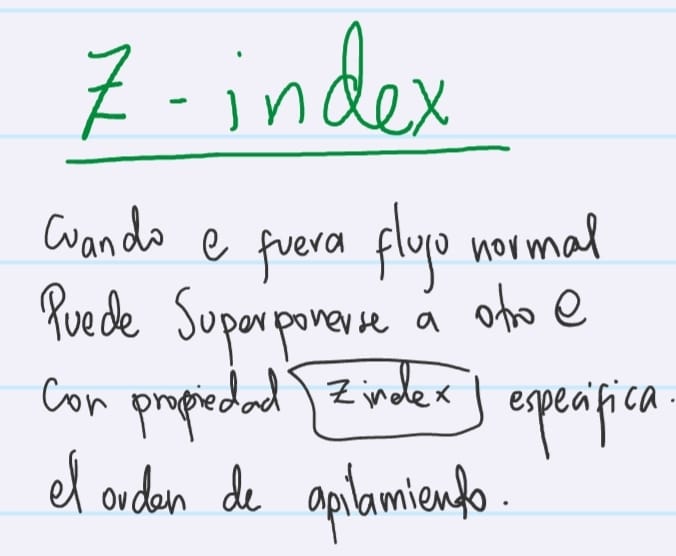 Z-index
Cuando e fuera flujo normal
Puede Superponerse a otro e
Con propiedad Zindex especifica.
el orden de apilamiento.